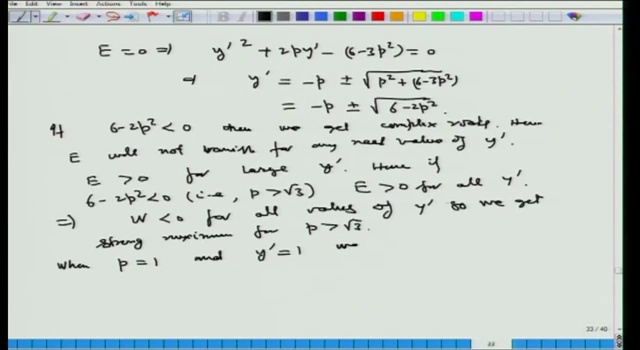 Edit View Insert Actions Tools Help
E = 0 ⇒ y'² + 2py' - (6-3p²) = 0
⇒ y' = -p ± √p²+(6-3p²)
= -p ± √6-2p²
If 6-2p² < 0 then we get complex roots. Hence
E will not vanish for any real value of y'.
E > 0 for large y'. Hence if
6-2p² < 0 (i.e., p > √3) E > 0 for all y'.
⇒ W < 0 for all values of y' so we get
strong maximum for p > √3.
When p = 1 and y' = 1 we
33 / 40
33